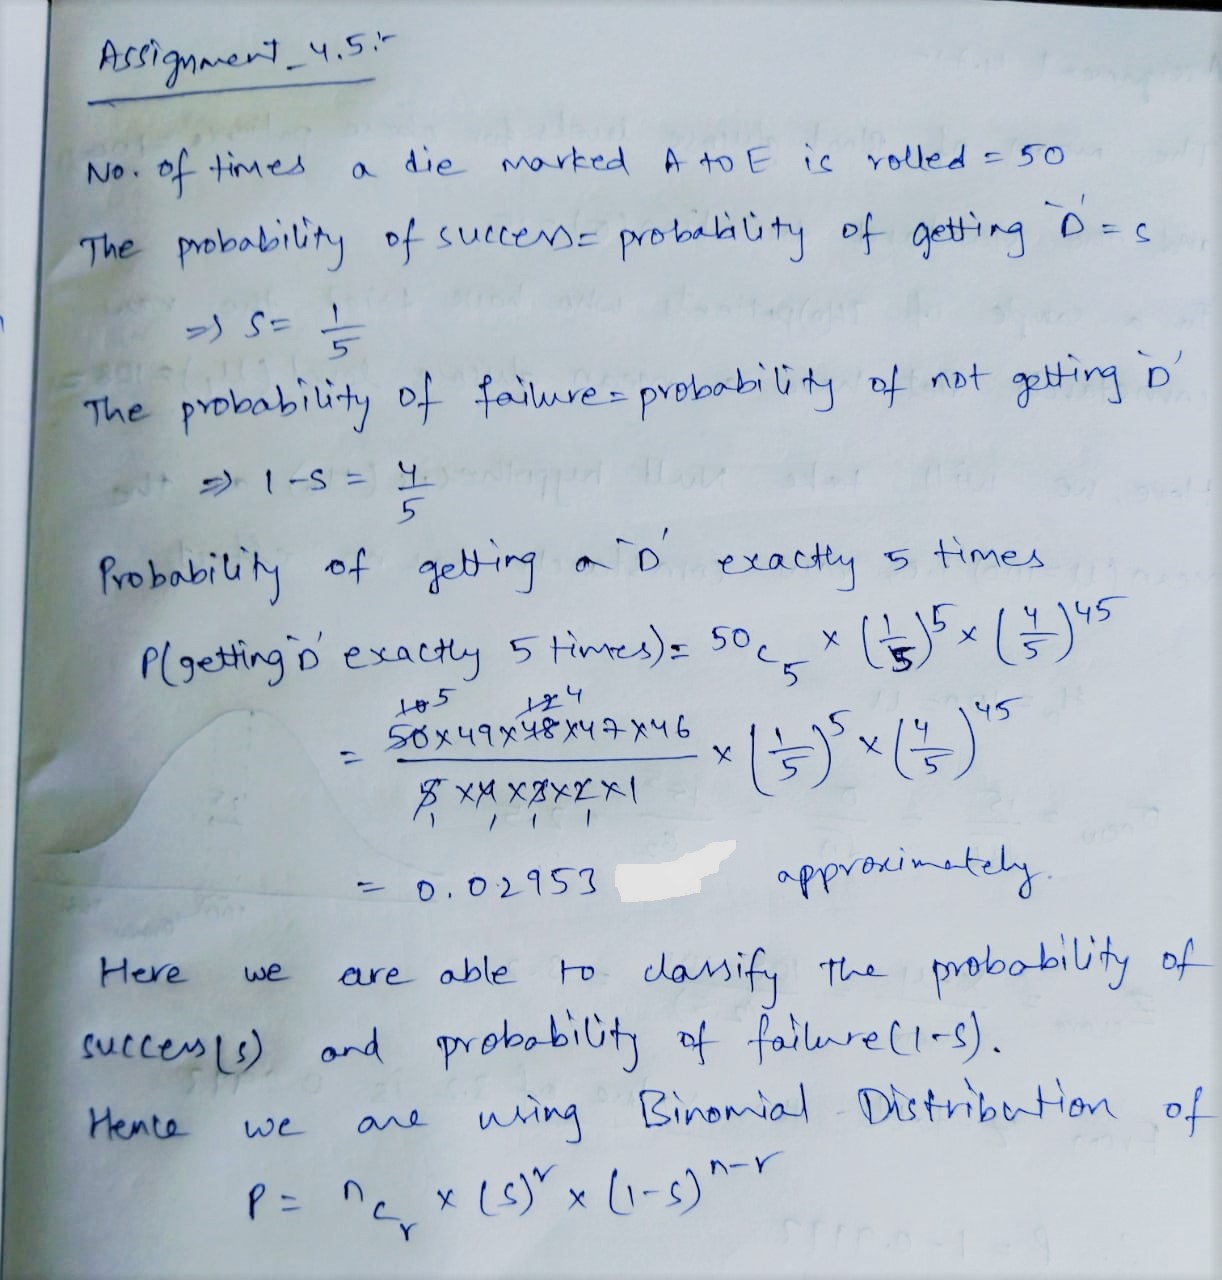 Assignment_4.5:-
No. of times a die marked A to E is rolled = 50
The probability of success = probability of getting 'D' = s
=> s = 1/5
The probability of failure = probability of not getting 'D'
=> 1-s = 4/5
Probability of getting a 'D' exactly 5 times
P(getting 'D' exactly 5 times) = 50c5 × (1/5)^5 × (4/5)^45
10 5 12 4
= 50×49×48×47×46 / 5×4×3×2×1 × (1/5)^5 × (4/5)^45
1 1 1 1
= 0.02953 approximately.
Here we are able to classify the probability of
success(s) and probability of failure(1-s).
Hence we are using Binomial Distribution of
P = ncr × (s)^r × (1-s)^n-r